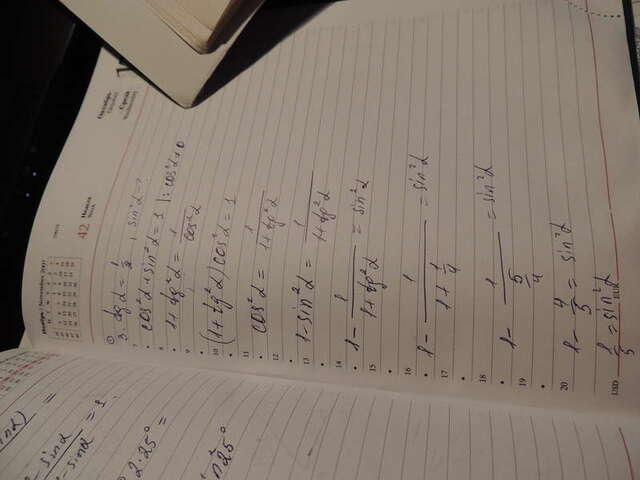 42
① 3. tg α = 1/2 ; sin²α = ?
7 • cos²α + sin²α = 1 |: cos²α ≠ 0
8 • 1 + tg²α = 1/cos²α
9
10 • (1 + tg²α) cos²α = 1
11 • cos²α = 1/(1 + tg²α)
12
13 • 1 - sin²α = 1/(1 + tg²α)
14 • 1 - 1/(1 + tg²α) = sin²α
15
16 • 1 - 1/(1 + 1/4) = sin²α
17
18 • 1 - 1/(5/4) = sin²α
19
20 • 1 - 4/5 = sin²α
1/5 = sin²α
- sin α
- sin α = 1.
2·25° =
in 25°